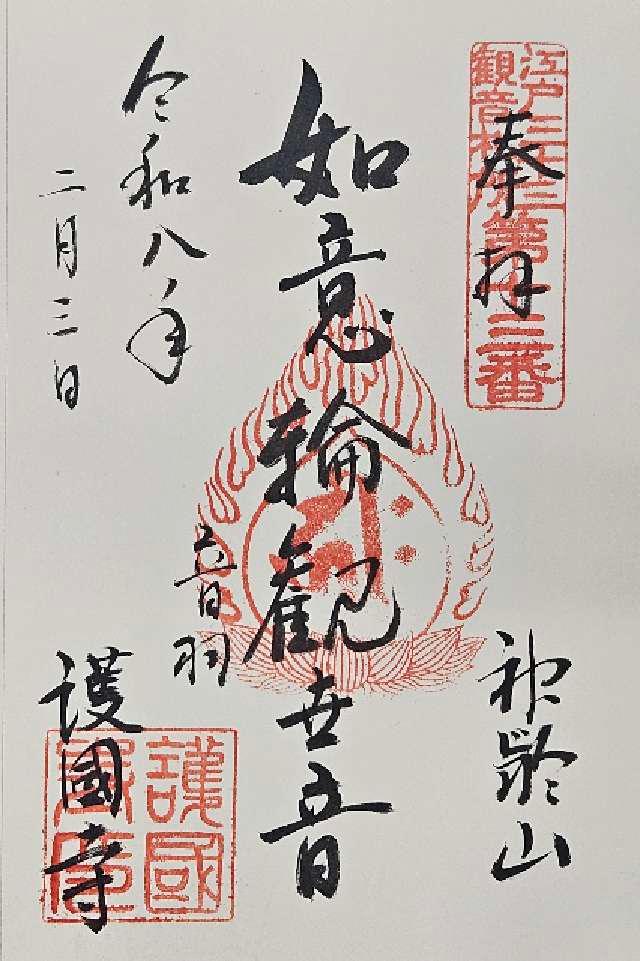 江戸三十三
観音札所
第十三番
奉拝
神齢山
如意輪観世音
音羽
護國寺
令和八年
二月三日